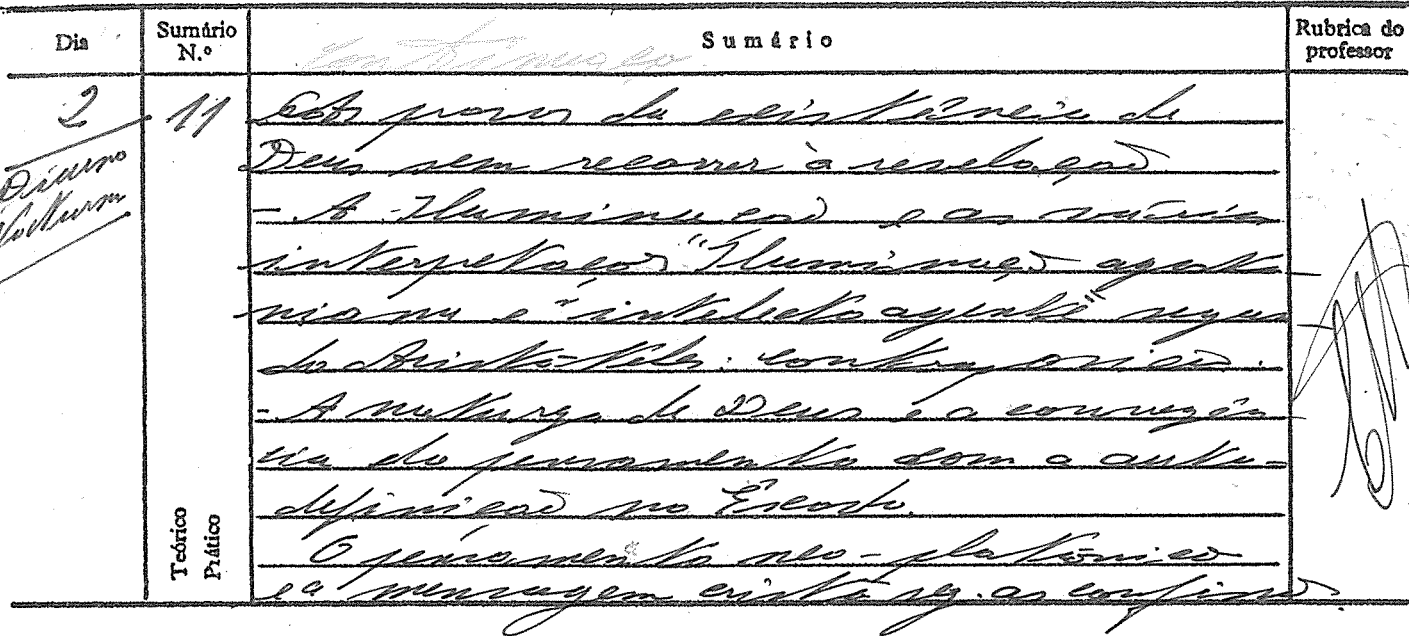 Dia Sumário N.º Sumário Rubrica do professor
Continuação
2 11 provas da existência de
Deus sem recorrer à revelação
Diurno
Nocturno
- A Iluminação e as várias
interpretações "Iluminação agosti
niana e "intelecto agente" segun
do Aristóteles: contraposição.
- A natureza de Deus e a convergên
cia do pensamento com a auto-
definição no Êxodo.
O pensamento neo-platónico
e a mensagem cristã seg. as confissões
Teórico
Prático